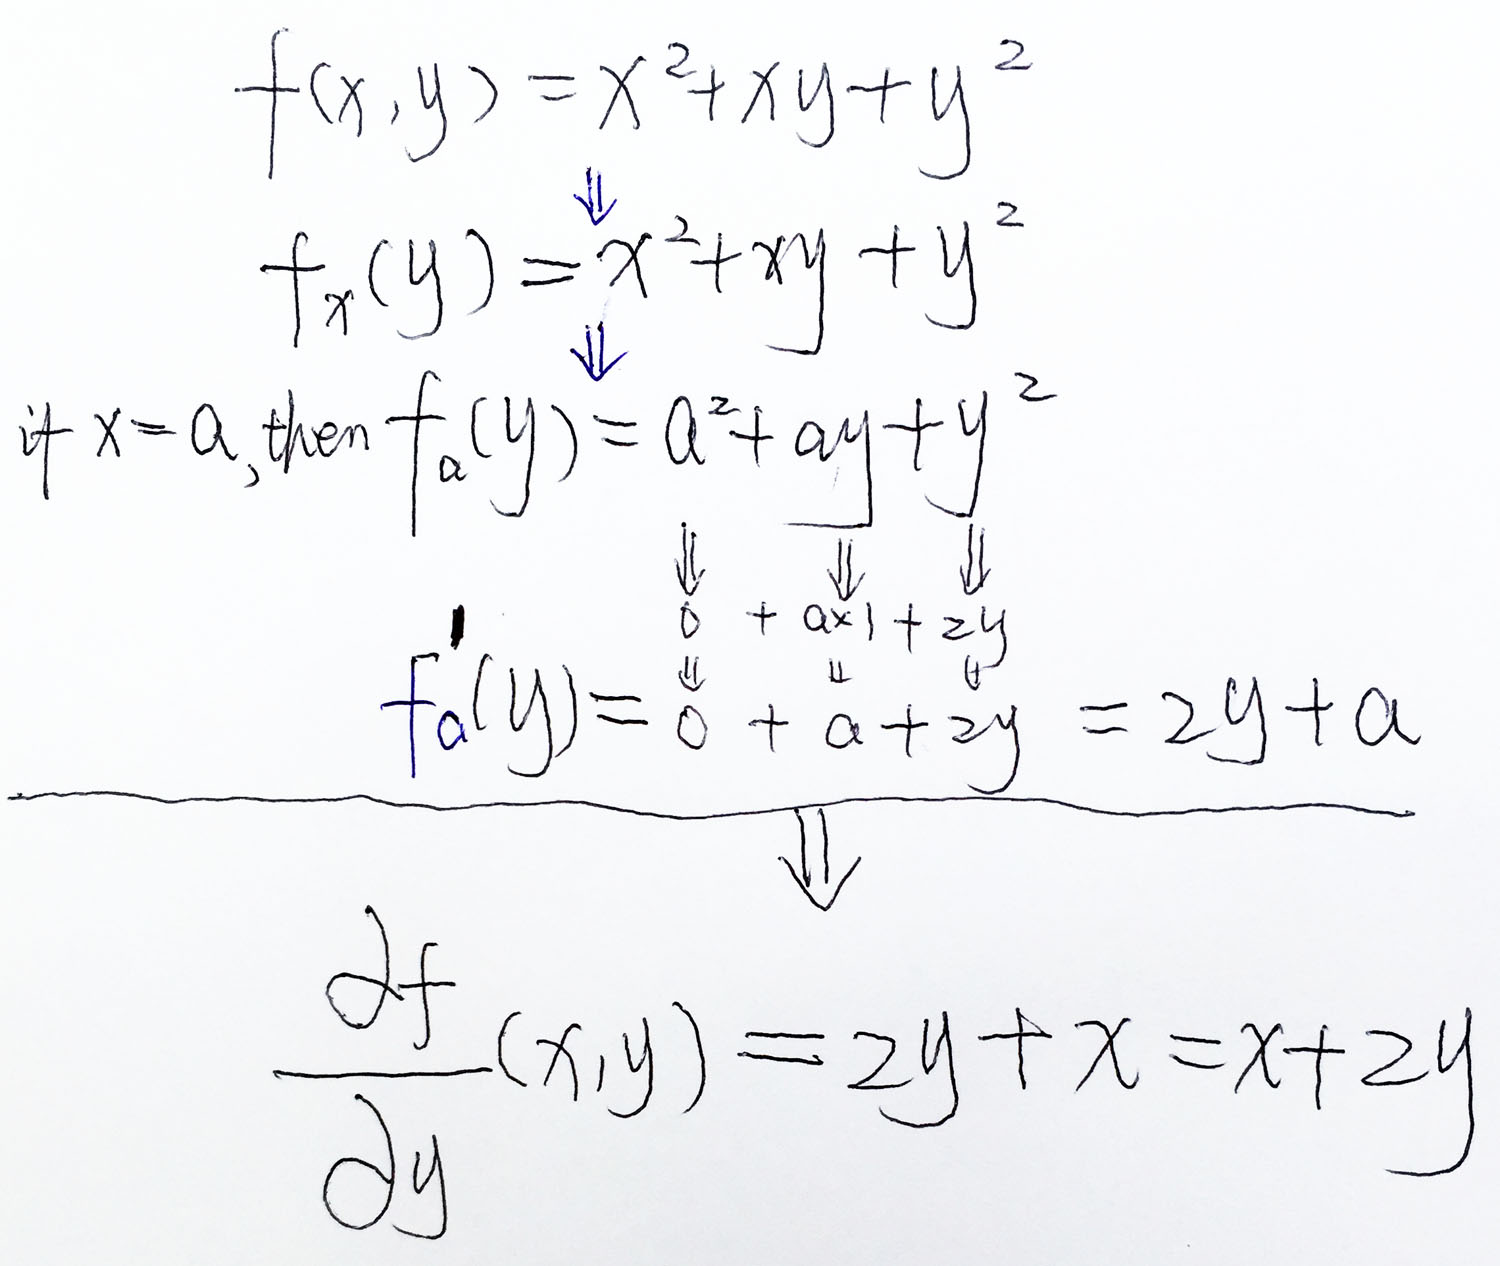 f(x,y) = x²+xy+y²
⇓
fₓ(y) = x²+xy+y²
⇓
if x=a, then fₐ(y) = a²+ay+y²
⇓ ⇓ ⇓
0 + a×1 + 2y
⇓ ⇓ ⇓
fₐ'(y) = 0 + a + 2y = 2y+a
⇓
∂f/∂y (x,y) = 2y+x = x+2y